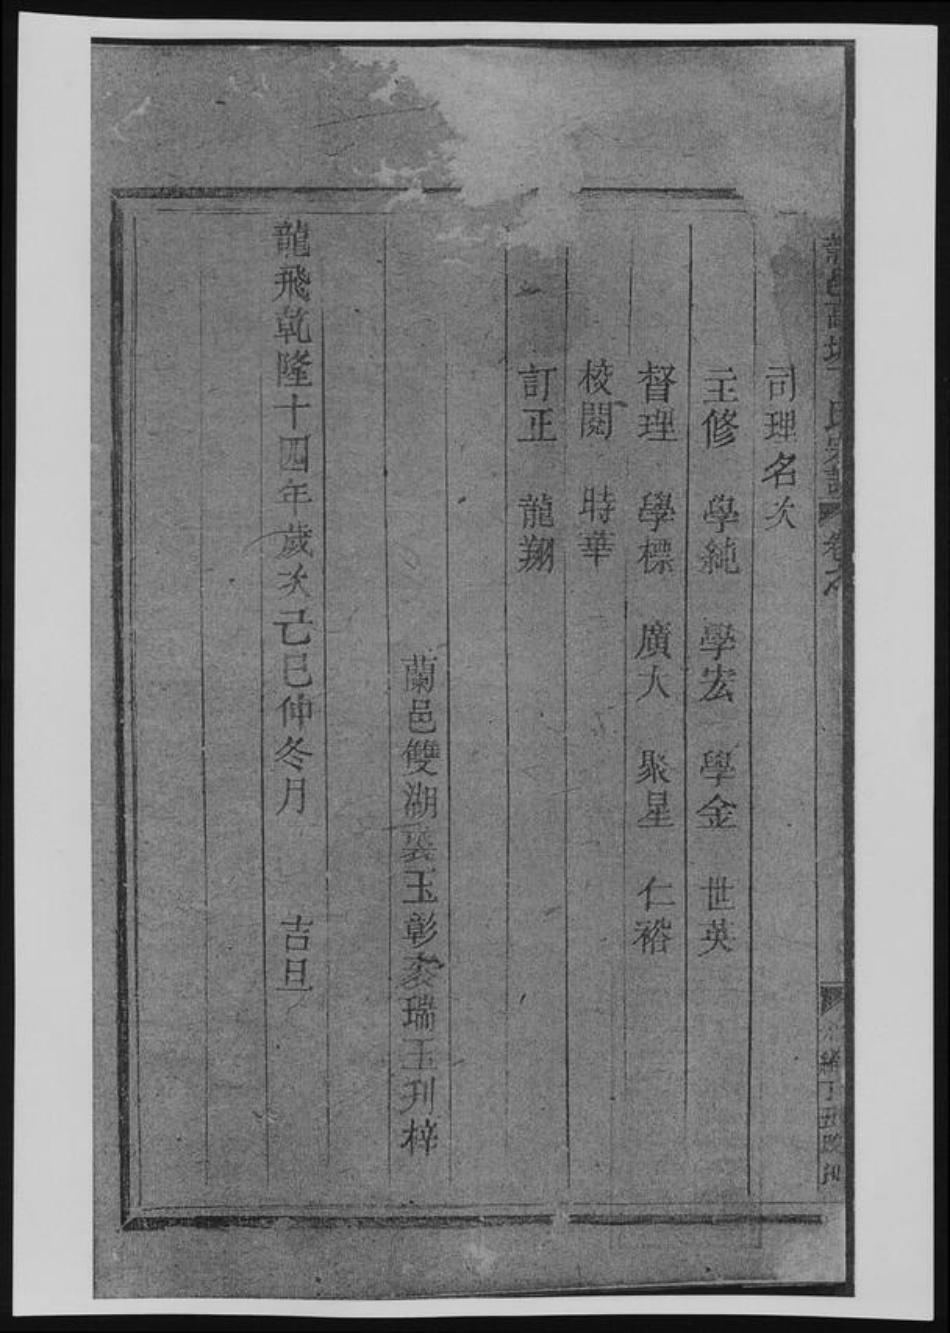 司理名次
主修 學純 學宏 學金 世英
督理 學標 廣大 聚星 仁裕
校閱 時華
訂正 龍翔
蘭邑雙湖裴玉彰裴瑞玉刋梓
龍飛乾隆十四年歲次己巳仲冬月 吉旦
氏宗譜 卷
緒丁丑改刊